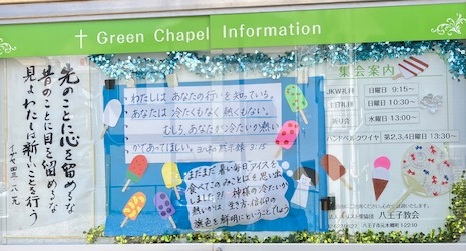 † Green Chapel Information
先のことに心を留めるな
昔のことに目を留めるな
見よわたしは新しいことを行う
イザヤ四三・一八、一九
・わたしは あなたの行いを知っている。
あなたは 冷たくもなく 熱くもない。
むしろ、あなたが冷たいか熱い
かであってほしい。 ヨハネの黙示録 3:15
まだまだ暑い毎日 アイスを
食べてこのみことばを思い出
しました?! 神様の冷たいか
熱いかは 生き方・信仰の
旗色を鮮明にということでしょう
集会案内
JKW礼拝 日曜日 9:15〜
主日礼拝 日曜日 10:30〜
祈り会 水曜日 13:00〜
ハンドベルクワイヤ 第2.3.4日曜日 13:30〜
八王子教会